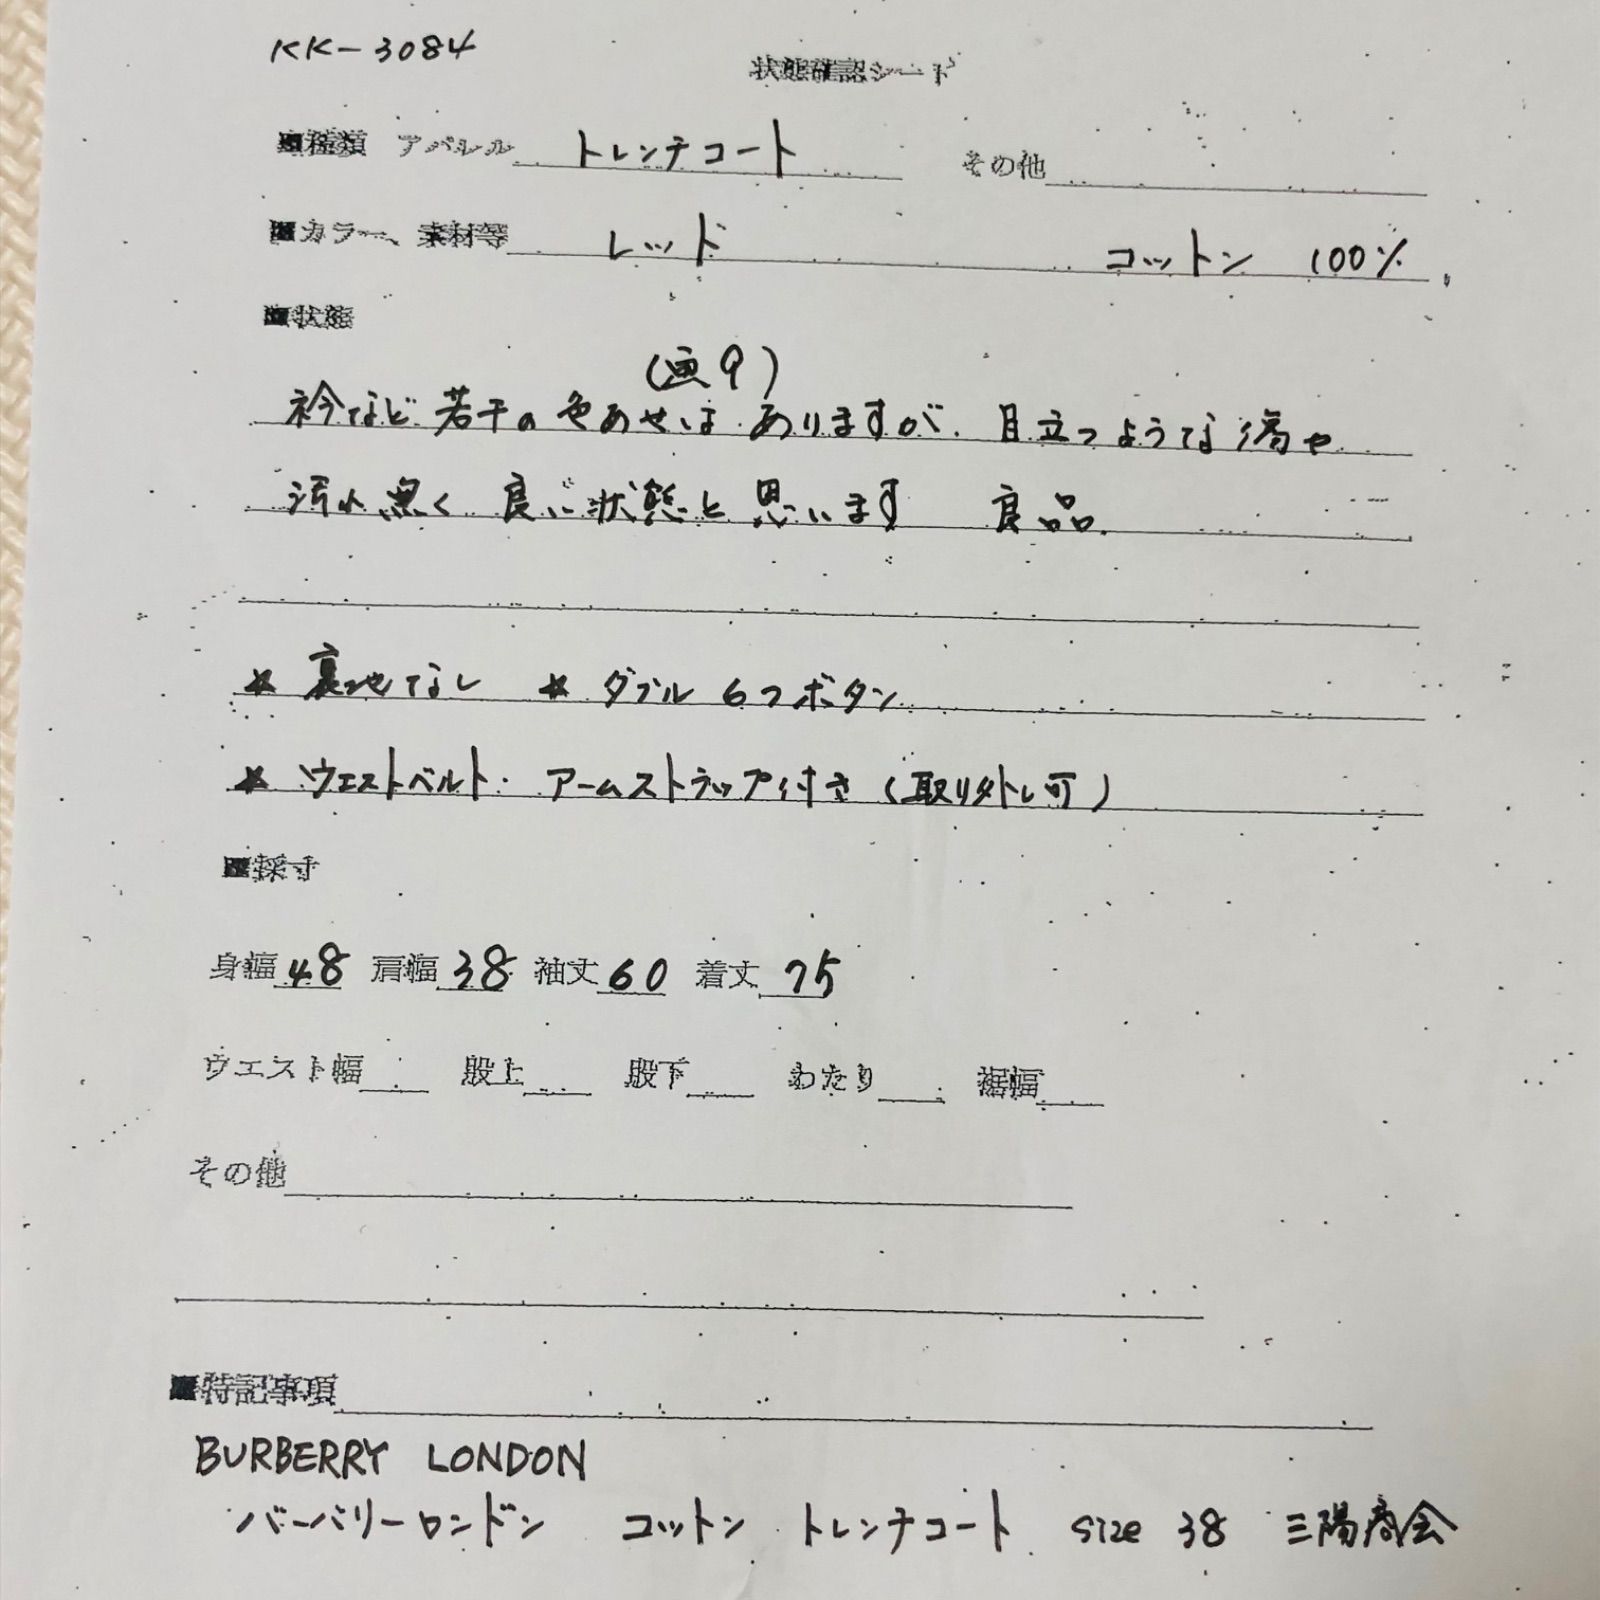 KK-3084
状態確認シート
■種類 アパレル トレンチコート その他
■カラー、素材等 レッド コットン 100%
■状態
(画9)
衿など若干の色あせはありますが、目立つような傷や
汚れ無く良い状態と思います 良品.
★ 裏地なし ★ ダブル6つボタン
★ ウエストベルト・アームストラップ付き(取り外し可)
■採寸
身幅 48 肩幅 38 袖丈 60 着丈 75
ウエスト幅 股上 股下 わたり 裾幅
その他
■特記事項
BURBERRY LONDON
バーバリーロンドン コットン トレンチコート size 38 三陽商会